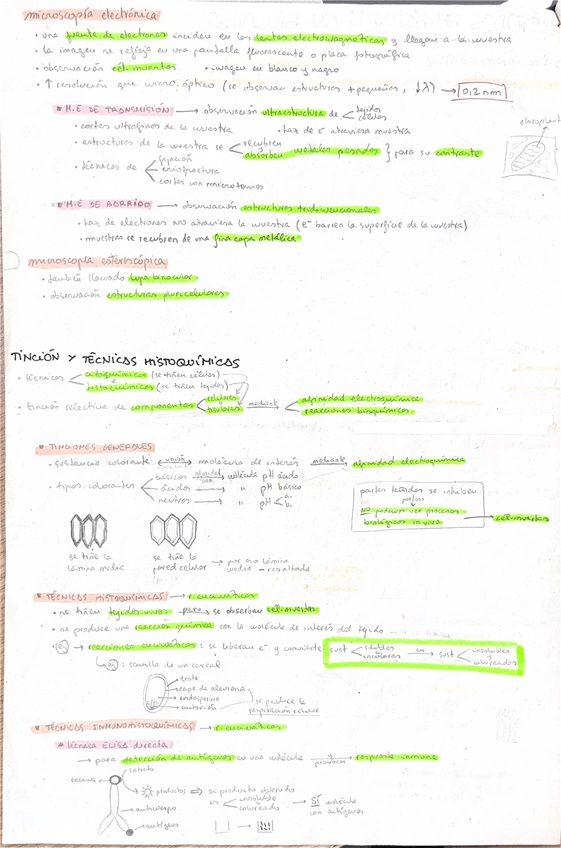 microscopía electrónica
• una fuente de electrones inciden en las lentes electromagnéticas y llegan a la muestra
• la imagen se refleja en una pantalla fluorescente o placa fotográfica
• observación cél. muertas • imagen en blanco y negro
• ↑ resolución que micro. óptico (se observan estructuras + pequeñas, ↓λ) → 0,2 nm
* M.E DE TRANSMISIÓN → observación ultraestructura de < tejidos células
• cortes ultrafinos de la muestra • haz de e⁻ atraviesa muestra
• estructuras de la muestra se < recubren absorben metales pesados } para su contraste
• técnicas de < fijación criofractura cortes con microtomos
cloroplasto
* M.E DE BARRIDO → observación estructuras tridimensionales
• haz de electrones NO atraviesa la muestra (e⁻ barren la superficie de la muestra)
• muestras se recubren de una fina capa metálica
microscopía esteroscópica
• también llamado lupa binocular
• observación estructuras pluricelulares
TINCIÓN Y TÉCNICAS HISTOQUÍMICAS
• técnicas < citoquímicas (se tiñen células) e histoquímicas (se tiñen tejidos)
• tinción selectiva de componentes < celulares tisulares mediante < afinidad electroquímica reacciones bioquímicas
* TINCIONES GENERALES
• sustancia colorante ↔ unión molécula de interés mediante → afinidad electroquímica
• tipos colorantes < básicos afinidad con → molécula pH ácido
ácidos → " pH básico
neutros → " pH < a. b.
partes teñidas se inhiben
por eso
NO podemos ver procesos
biológicos in vivo → cél. muertas
se tiñe la lámina media
se tiñe la pared celular → por eso lámina media - resaltada
* TÉCNICAS HISTOQUÍMICAS → r. enzimáticas
• no tiñen tejidos vivos pero → se observan cél. muertas
• se produce una reacción química con la molécula de interés del tejido
• ej → reacciones enzimáticas : se liberan e⁻ y convierte sust < solubles incoloras en → sust < insolubles y coloreadas
ej : semilla de un cereal
testa
capa de aleurona
endospermo
embrión → se produce la respiración celular
* TÉCNICAS INMUNOHISTOQUÍMICAS → r. enzimáticas
* técnica ELISA directa
→ para detección de antígenos en una molécula → provocan respuesta inmune
sustrato
enzima
productos ⇒ se producto obtenido es < insoluble coloreado → SÍ molécula con antígenos
anticuerpo
antígeno